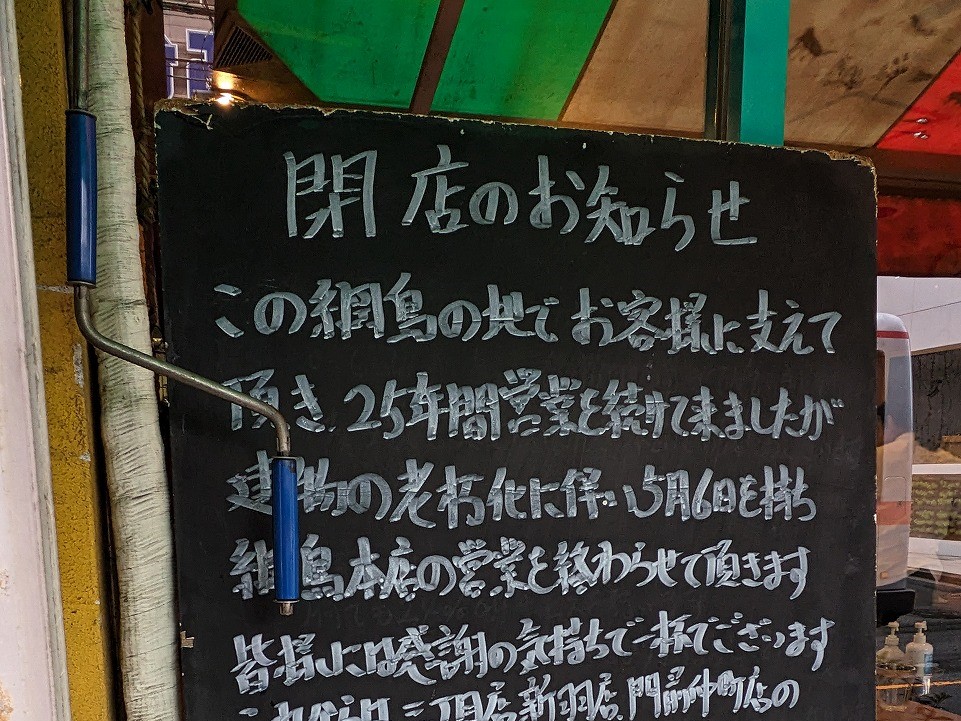 閉店のお知らせ
この綱島の地でお客様に支えて
頂き、25年間営業を続けて来ましたが
建物の老朽化に伴い5月6日を持ち
綱島本店の営業を終わらせて頂きます
皆様には感謝の気持ちで一杯でございます
これからは 新羽店、門前仲町店の